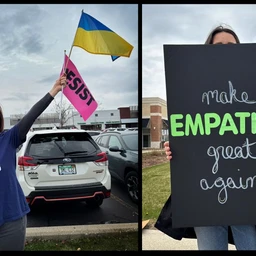 RESIST
make
EMPATHY
great
again